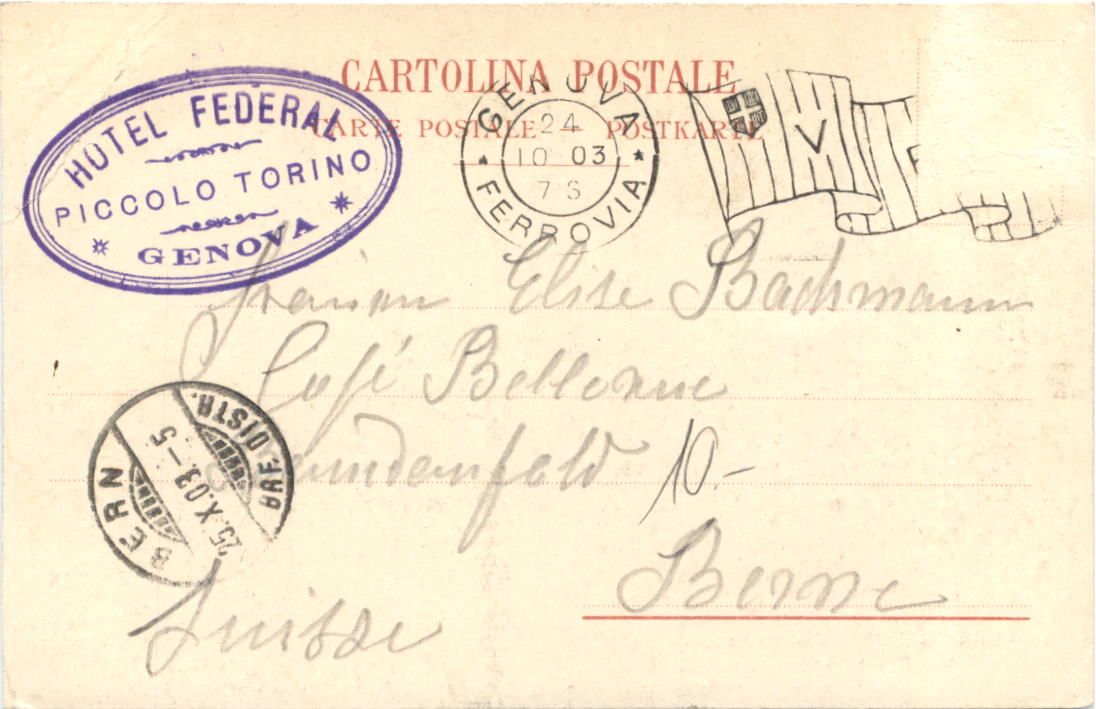 CARTOLINA POSTALE
CARTE POSTALE — POSTKARTE
HOTEL FEDERAL
PICCOLO TORINO
GENOVA
GENOVA
24
10 03
FERROVIA
V
Elise Bachmann
Café Bellevue
10.-
Berne
Suisse
BERN
25.X.03.–5